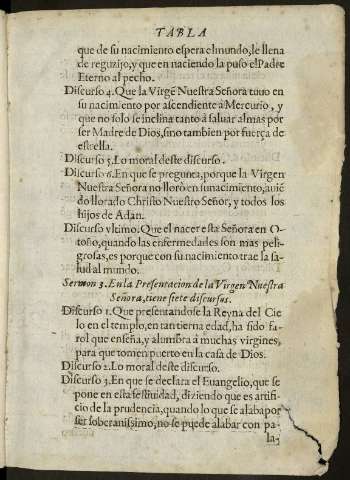 TABLA
que de su nacimiento espera el mundo, le llena
de reguzijo, y que en naciendo la puso el Padre
Eterno al pecho.
Discurso 4. Que la Virgẽ Nuestra Señora tuuo en
su nacimiento por ascendiente a Mercurio, y
que no solo se inclina tanto à saluar almas por
ser Madre de Dios, sino tambien por fuerça de
estrella.
Discurso 5. Lo moral deste discurso.
Discurso 6. En que se pregunta, porque la Virgen
Nuestra Señora no llorò en su nacimiento, auiẽ
do llorado Christo Nuestro Señor, y todos los
hijos de Adan.
Discurso vltimo. Que el nacer esta Señora en O-
toño, quando las enfermedades son mas peli-
grosas, es porque con su nacimiento trae la sa-
lud al mundo.
Sermon 3. En la Presentacion de la Virgen Nuestra
Señora, tiene siete discursos.
Discurso 1. Que presentandose la Reyna del Cie
lo en el templo, en tan tierna edad, ha sido fa-
rol que enseña, y alumbra à muchas virgines,
para que tomen puerto en la casa de Dios.
Discurso 2. Lo moral deste discurso.
Discurso 3. En que se declara el Euangelio, que se
pone en esta festiuidad, diziendo que es artifi-
cio de la prudencia, quando lo que se alaba por
ser soberanissimo, no se puede alabar con pa-
la-